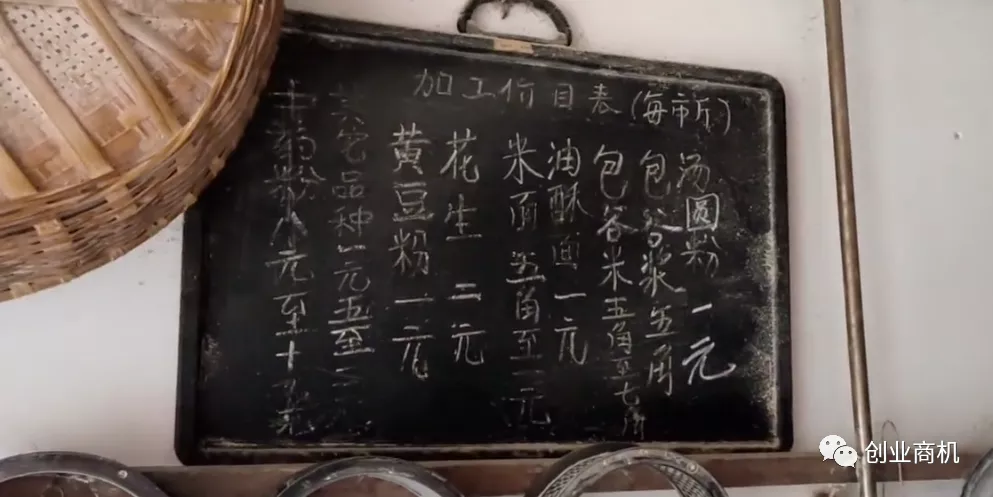 加工价目表(每市斤)
汤圆粉 一元
包谷浆 五角
包谷米五角至七角
油酥面 一元
米面 五角至一元
花生 二元
黄豆粉 一元
其它品种一元五至二元
中药粉八元至十元
创业商机